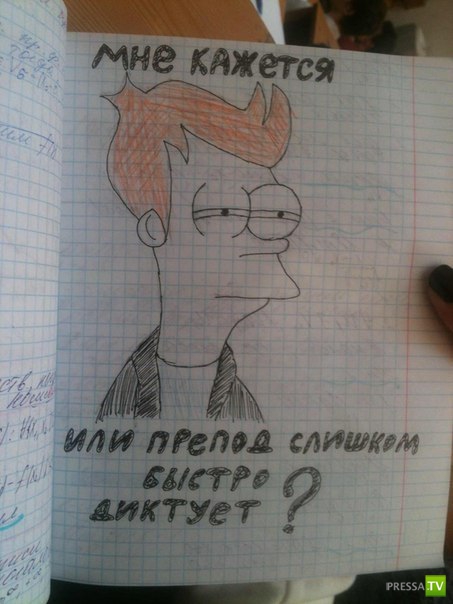 мне кажется
или препод слишком
быстро
диктует ?
PRESSA.TV